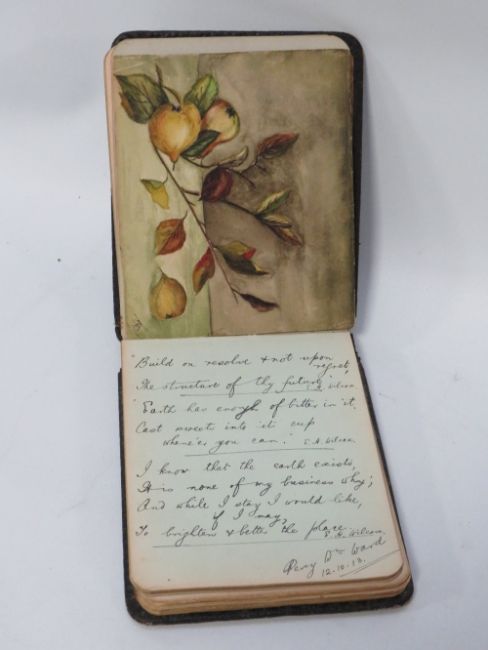 "Build on resolve & not upon
regret,
The structure of thy future". Wilcox.
"Earth has enough of bitter in it,
Cast sweets into its cup
whene'er you can." E.A. Wilcox
I know that the earth exists,
It is none of my business why;
And while I stay I would like,
if I may,
To brighten & better the place.
E. A. Wilcox.
Percy Ward
12-10-13.